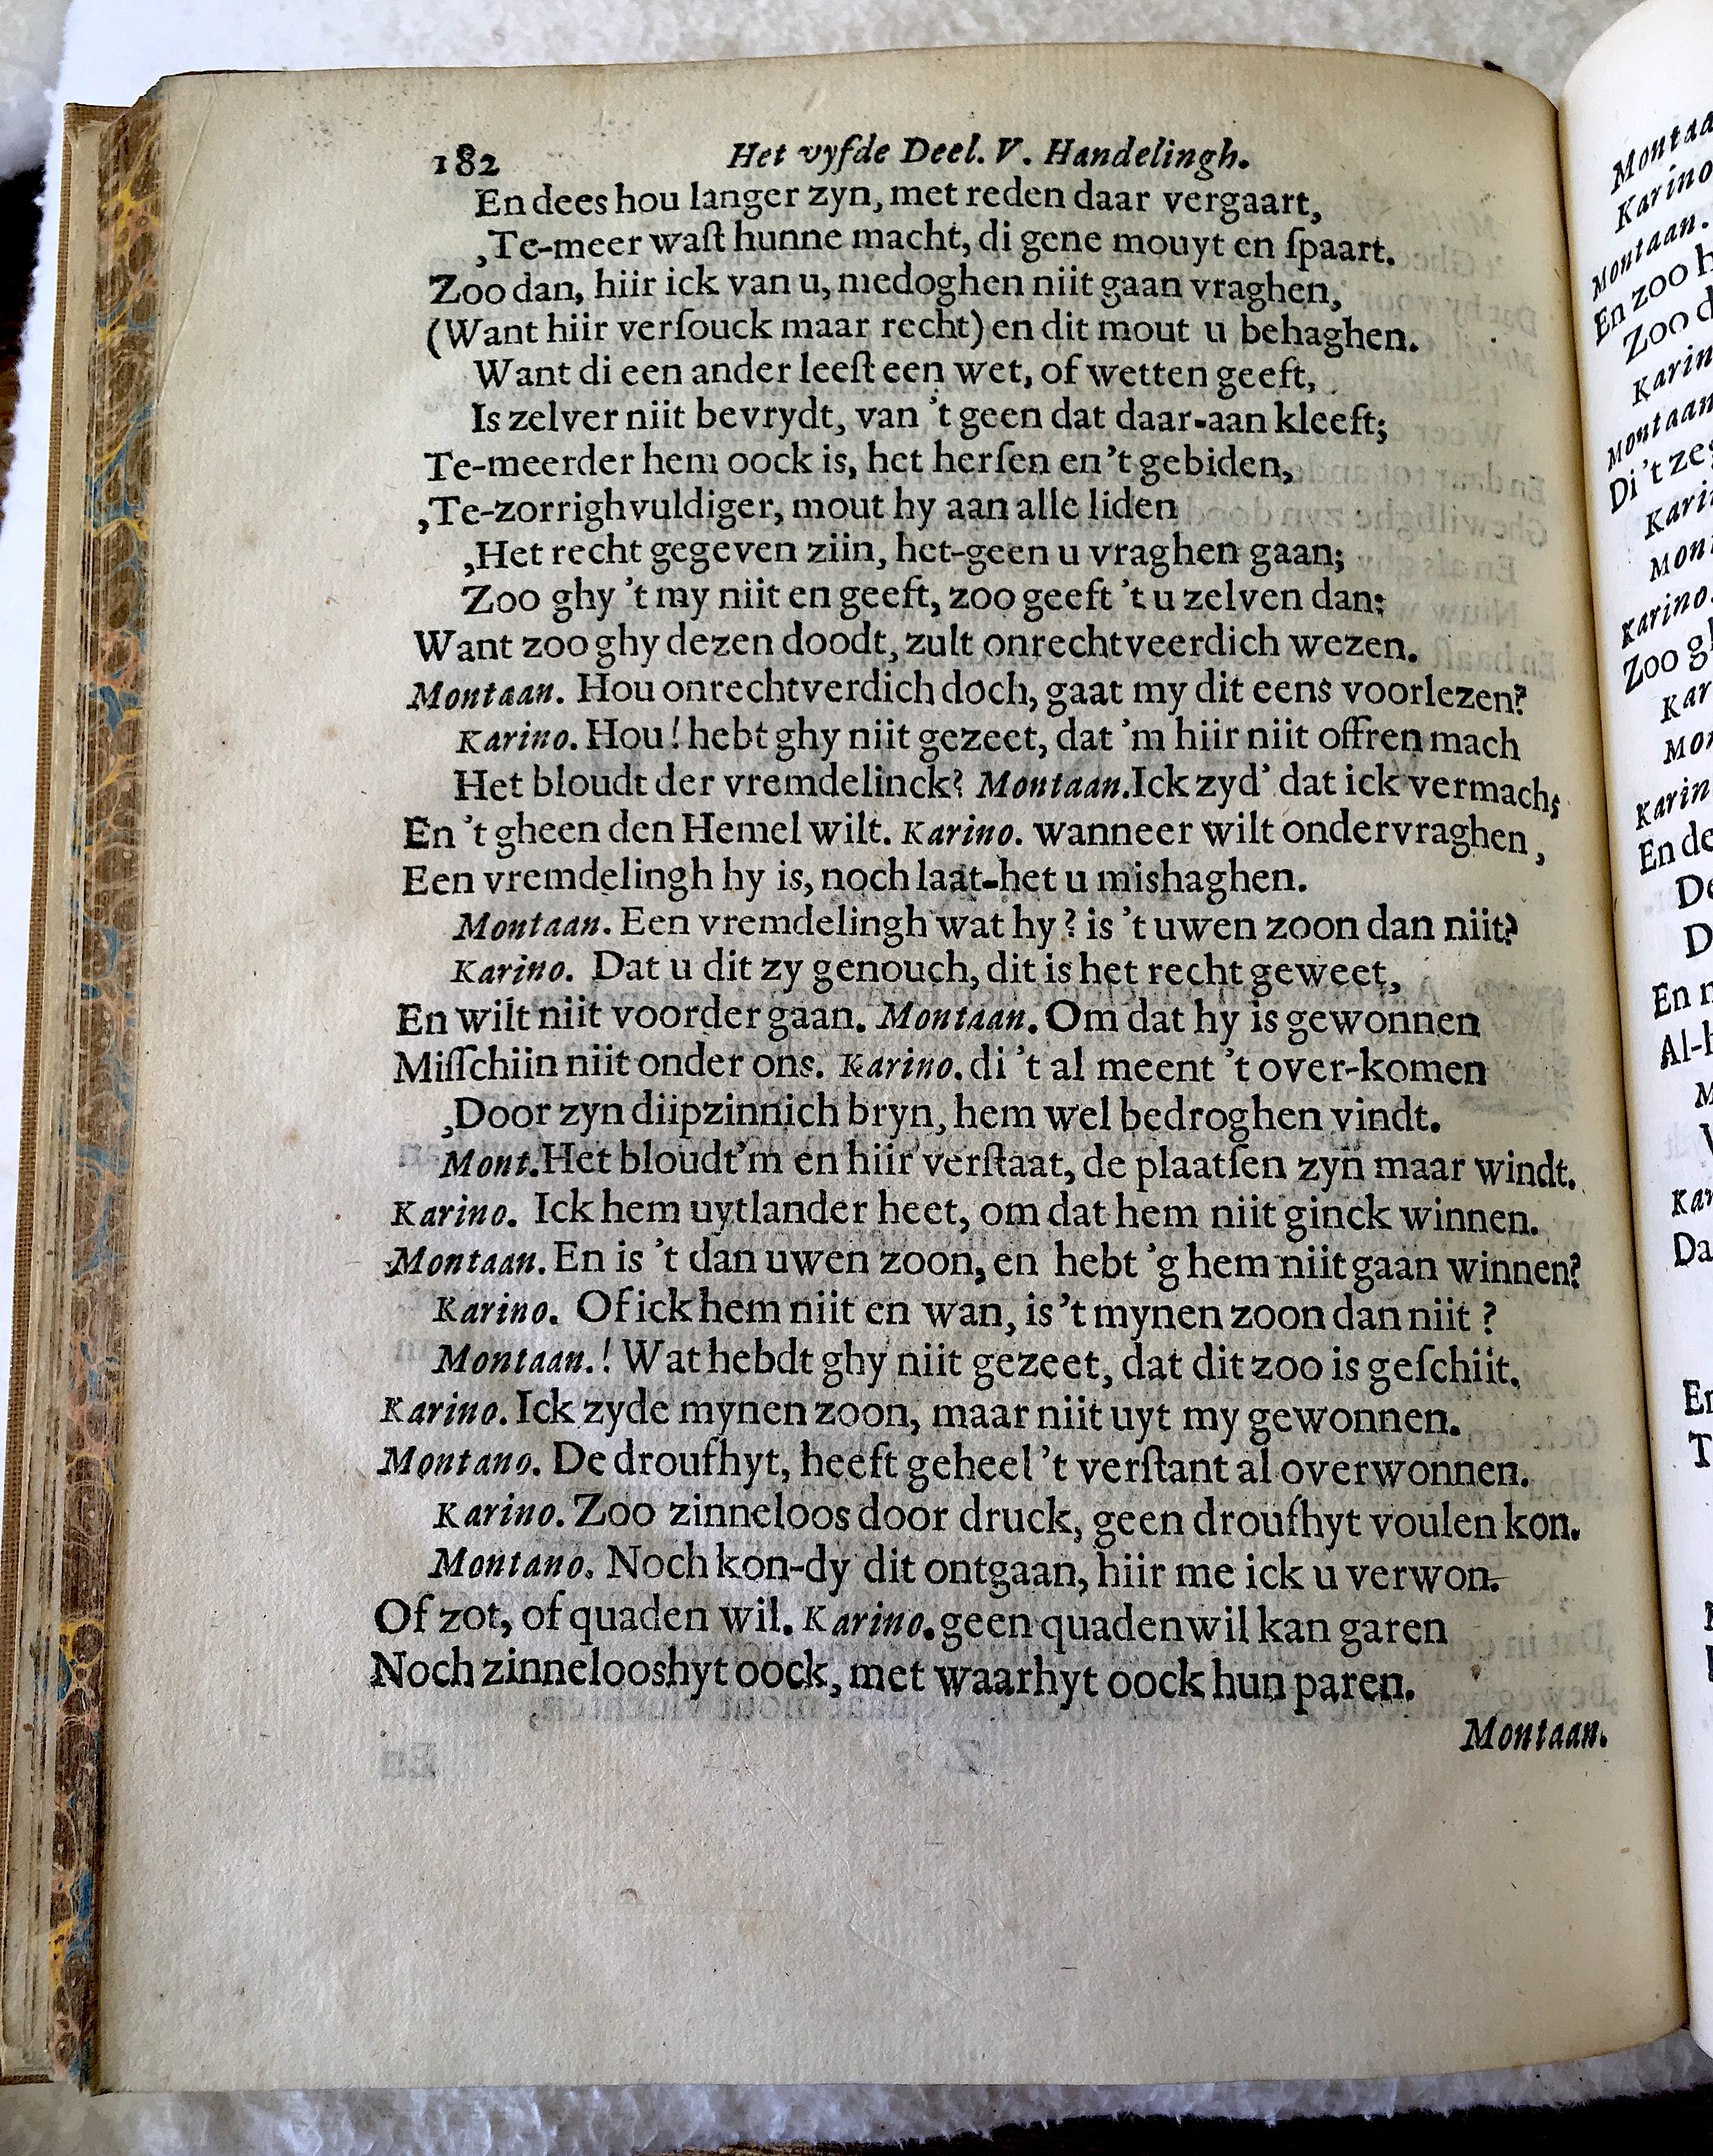 182 Het vyfde Deel. V. Handelingh.
En dees hou langer zyn, met reden daar vergaart,
,Te-meer waſt hunne macht, di gene mouyt en ſpaart.
Zoo dan, hiir ick van u, medoghen niit gaan vraghen,
(Want hiir verſouck maar recht) en dit mout u behaghen.
Want di een ander leeſt een wet, of wetten geeft,
Is zelver niit bevrydt, van 't geen dat daar-aan kleeft;
Te-meerder hem oock is, het herſen en 't gebiden,
,Te-zorrighvuldiger, mout hy aan alle liden
,Het recht gegeven ziin, het-geen u vraghen gaan;
Zoo ghy 't my niit en geeft, zoo geeft 't u zelven dan:
Want zoo ghy dezen doodt, zult onrechtveerdich wezen.
Montaan. Hou onrechtverdich doch, gaat my dit eens voorlezen?
Karino. Hou! hebt ghy niit gezeet, dat 'm hiir niit offren mach
Het bloudt der vremdelinck? Montaan. Ick zyd' dat ick vermach;
En 't gheen den Hemel wilt. Karino. wanneer wilt ondervraghen,
Een vremdelingh hy is, noch laat-het u mishaghen.
Montaan. Een vremdelingh wat hy? is 't uwen zoon dan niit?
Karino. Dat u dit zy genouch, dit is het recht geweet,
En wilt niit voorder gaan. Montaan. Om dat hy is gewonnen
Miſſchiin niit onder ons. Karino. di 't al meent 't over-komen
,Door zyn diipzinnich bryn, hem wel bedroghen vindt.
Mont. Het bloudt'm en hiir verſtaat, de plaatſen zyn maar windt.
Karino. Ick hem uytlander heet, om dat hem niit ginck winnen.
Montaan. En is 't dan uwen zoon, en hebt 'g hem niit gaan winnen?
Karino. Of ick hem niit en wan, is 't mynen zoon dan niit?
Montaan.! Wat hebdt ghy niit gezeet, dat dit zoo is geſchiit.
Karino. Ick zyde mynen zoon, maar niit uyt my gewonnen.
Montano. De droufhyt, heeft geheel 't verſtant al overwonnen.
Karino. Zoo zinneloos door druck, geen droufhyt voulen kon.
Montano. Noch kon-dy dit ontgaan, hiir me ick u verwon.
Of zot, of quaden wil. Karino. geen quaden wil kan garen
Noch zinnelooshyt oock, met waarhyt oock hun paren.
Montaan.
Montaa
Karino
Montaan.
En zoo h
Zoo d
Karin
Montaan
Di 't zeg
Kari
Mont
Karino.
Zoo gh
Kar
Mon
Karin
En de
De
D
En n
Al-h
M
V
Kar
Da
En
T